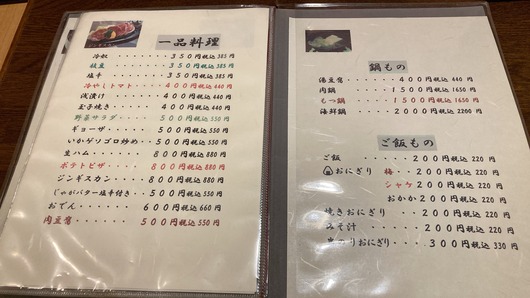 一品料理
冷奴 ・・・・・・・ 350円税込385円
枝豆 ・・・・・・・ 350円税込385円
塩辛 ・・・・・・・ 350円税込385円
冷やしトマト ・・・・・ 400円税込440円
浅漬け ・・・・・・・ 400円税込440円
玉子焼き ・・・・・・ 400円税込440円
野菜サラダ ・・・・・ 500円税込550円
ギョーザ ・・・・・・ 500円税込550円
いかゲソゴロ炒め ・・ 500円税込550円
生ハム ・・・・・・・ 800円税込880円
ポテトピザ ・・・・・ 800円税込880円
ジンギスカン ・・・・ 800円税込880円
じゃがバター塩辛付き ・ 500円税込550円
おでん ・・・・・・・ 600円税込660円
肉豆腐 ・・・・・・ 500円税込550円
鍋もの
湯豆腐 ・・・・・ 400円税込440円
肉鍋 ・・・・・ 1500円税込1650円
もつ鍋 ・・・・ 1500円税込1650円
海鮮鍋 ・・・・ 2000円税込2200円
ご飯もの
ご飯 ・・・・・・ 200円税込220円
おにぎり 梅 ・・ 200円税込220円
シャケ 200円税込220円
おかか 200円税込220円
焼きおにぎり ・・ 200円税込220円
みそ汁 ・・・・ 200円税込220円
おにぎり ・・・ 300円税込330円